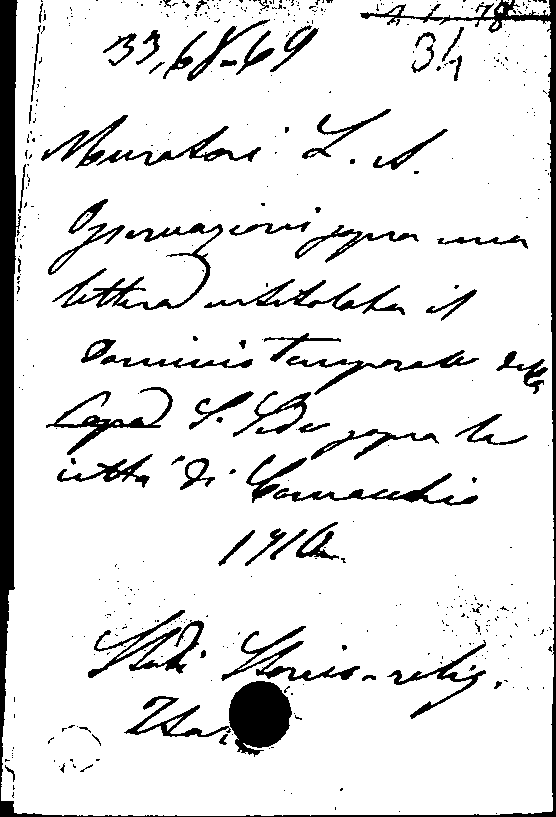 33,68-69
34
Muratori L. A.
Osservazioni sopra una
lettera intitolata il
Dominio Temporale della
S. Sede sopra la
città di Comacchio
Studi Storico-relig.